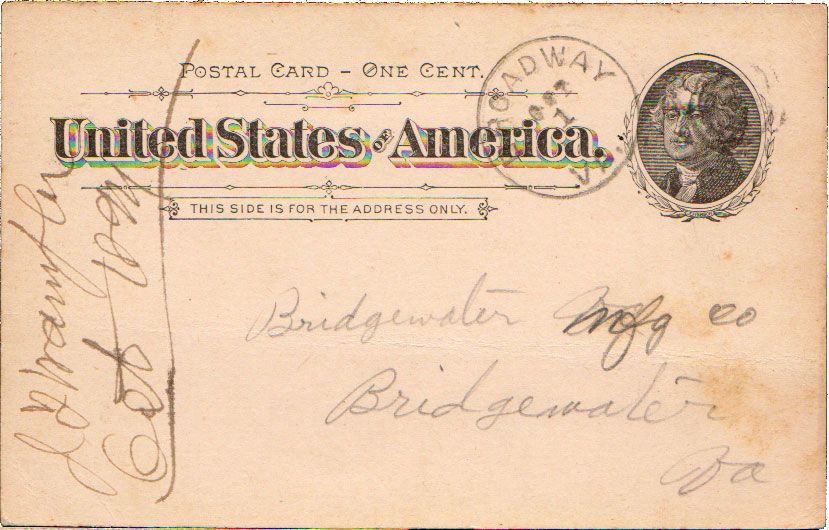 POSTAL CARD – ONE CENT.
United States of America.
THIS SIDE IS FOR THE ADDRESS ONLY.
BROADWAY
1
VA.
Bridgewater Mfg co
Bridgewater
Va